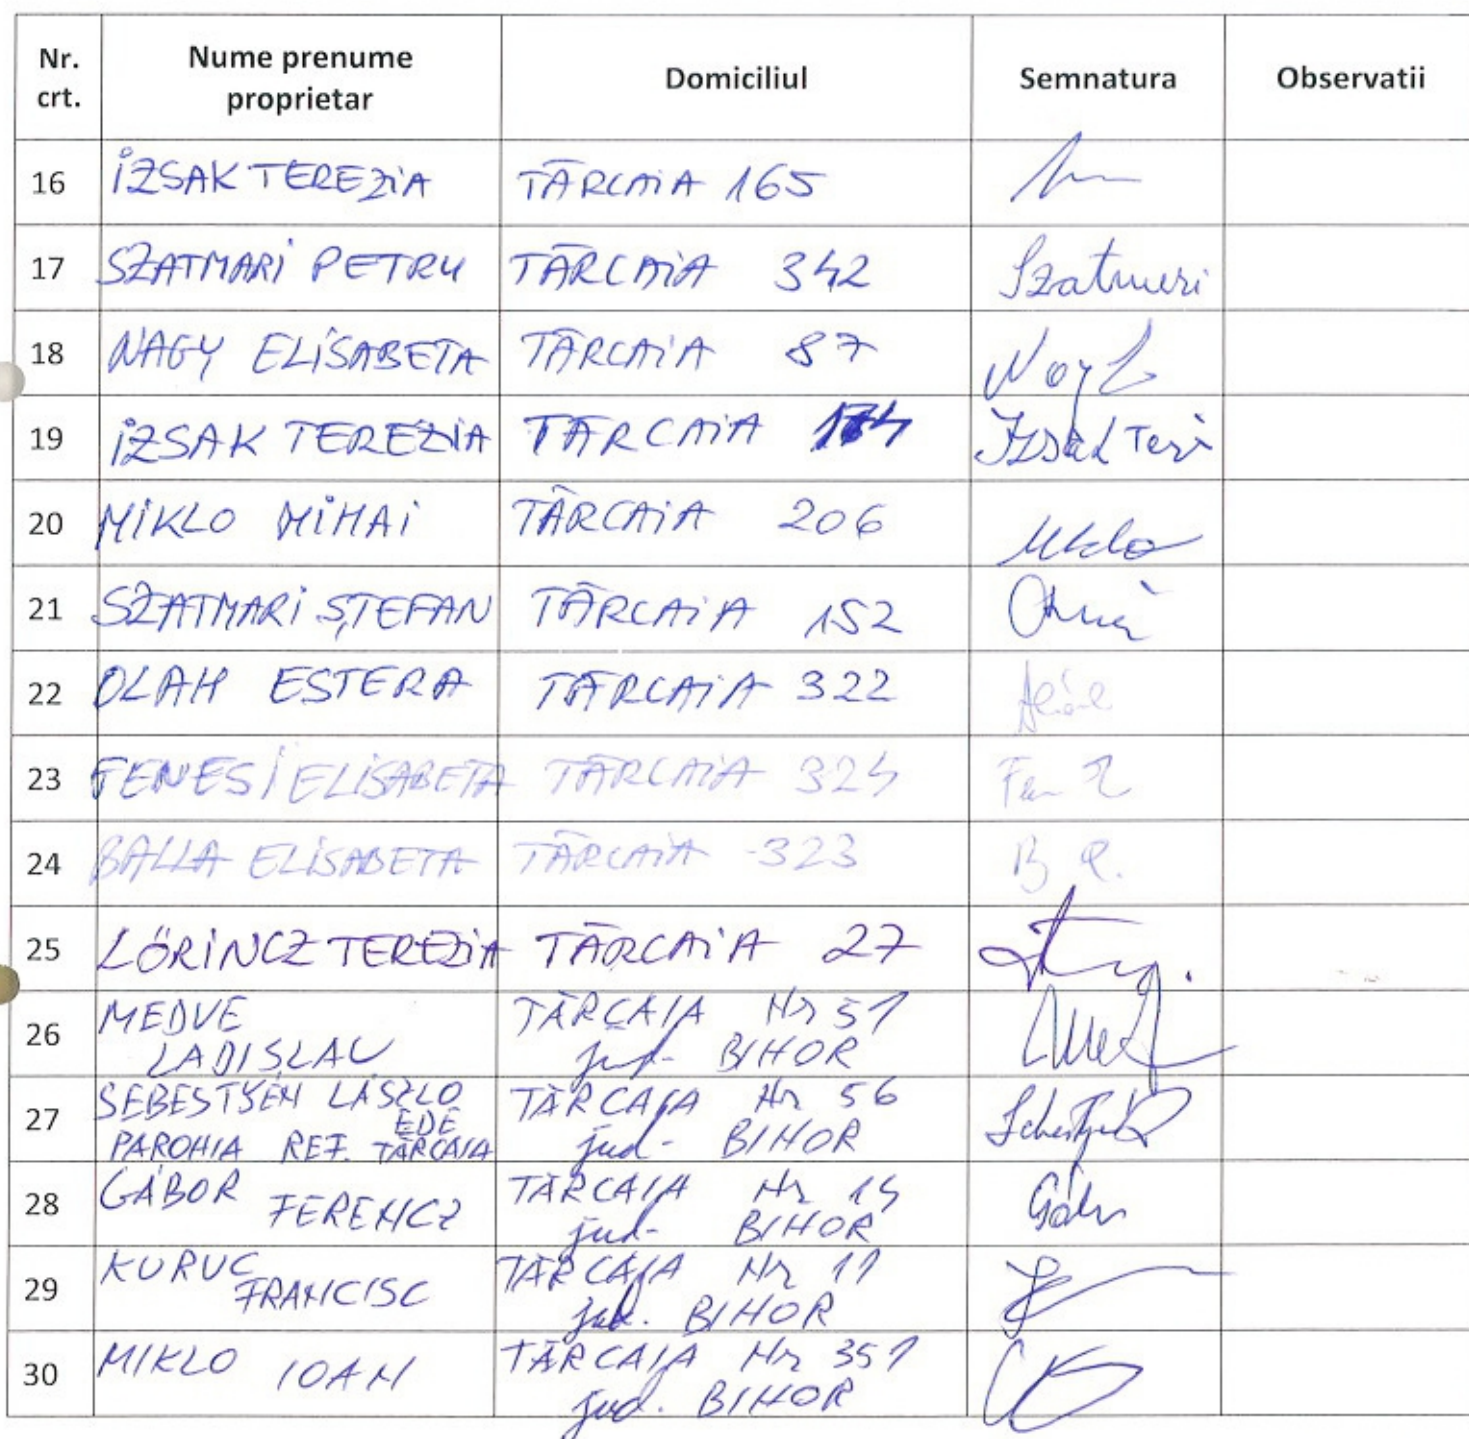 Nr. crt. Nume prenume proprietar Domiciliul Semnatura Observatii
16 IZSAK TEREZIA TĂRCAIA 165
17 SZATMARI PETRU TĂRCAIA 342 Szatmeri
18 NAGY ELISABETA TĂRCAIA 87 Nagy E
19 IZSAK TEREZIA TĂRCAIA Izsak Teri
20 MIKLO MIHAI TĂRCAIA 206 Miklo
21 SZATMARI ȘTEFAN TĂRCAIA 152
22 OLAH ESTERA TĂRCAIA 322
23 FENESI ELISABETA TĂRCAIA 324 Fen E
24 BALLA ELISABETA TĂRCAIA 323 B E.
25 LÖRINCZ TEREZIA TĂRCAIA 27
26 MEDVE LADISLAU TĂRCAIA Nr 51 jud- BIHOR
27 SEBESTYÉN LÁSZLO EDE PAROHIA REF. TĂRCAIA TĂRCAIA Nr 56 jud- BIHOR
28 GÁBOR FERENCZ TĂRCAIA Nr 14 jud- BIHOR Gábor
29 KURUC FRANCISC TĂRCAIA Nr 11 jud. BIHOR
30 MIKLO IOAN TĂRCAIA Nr 351 jud. BIHOR